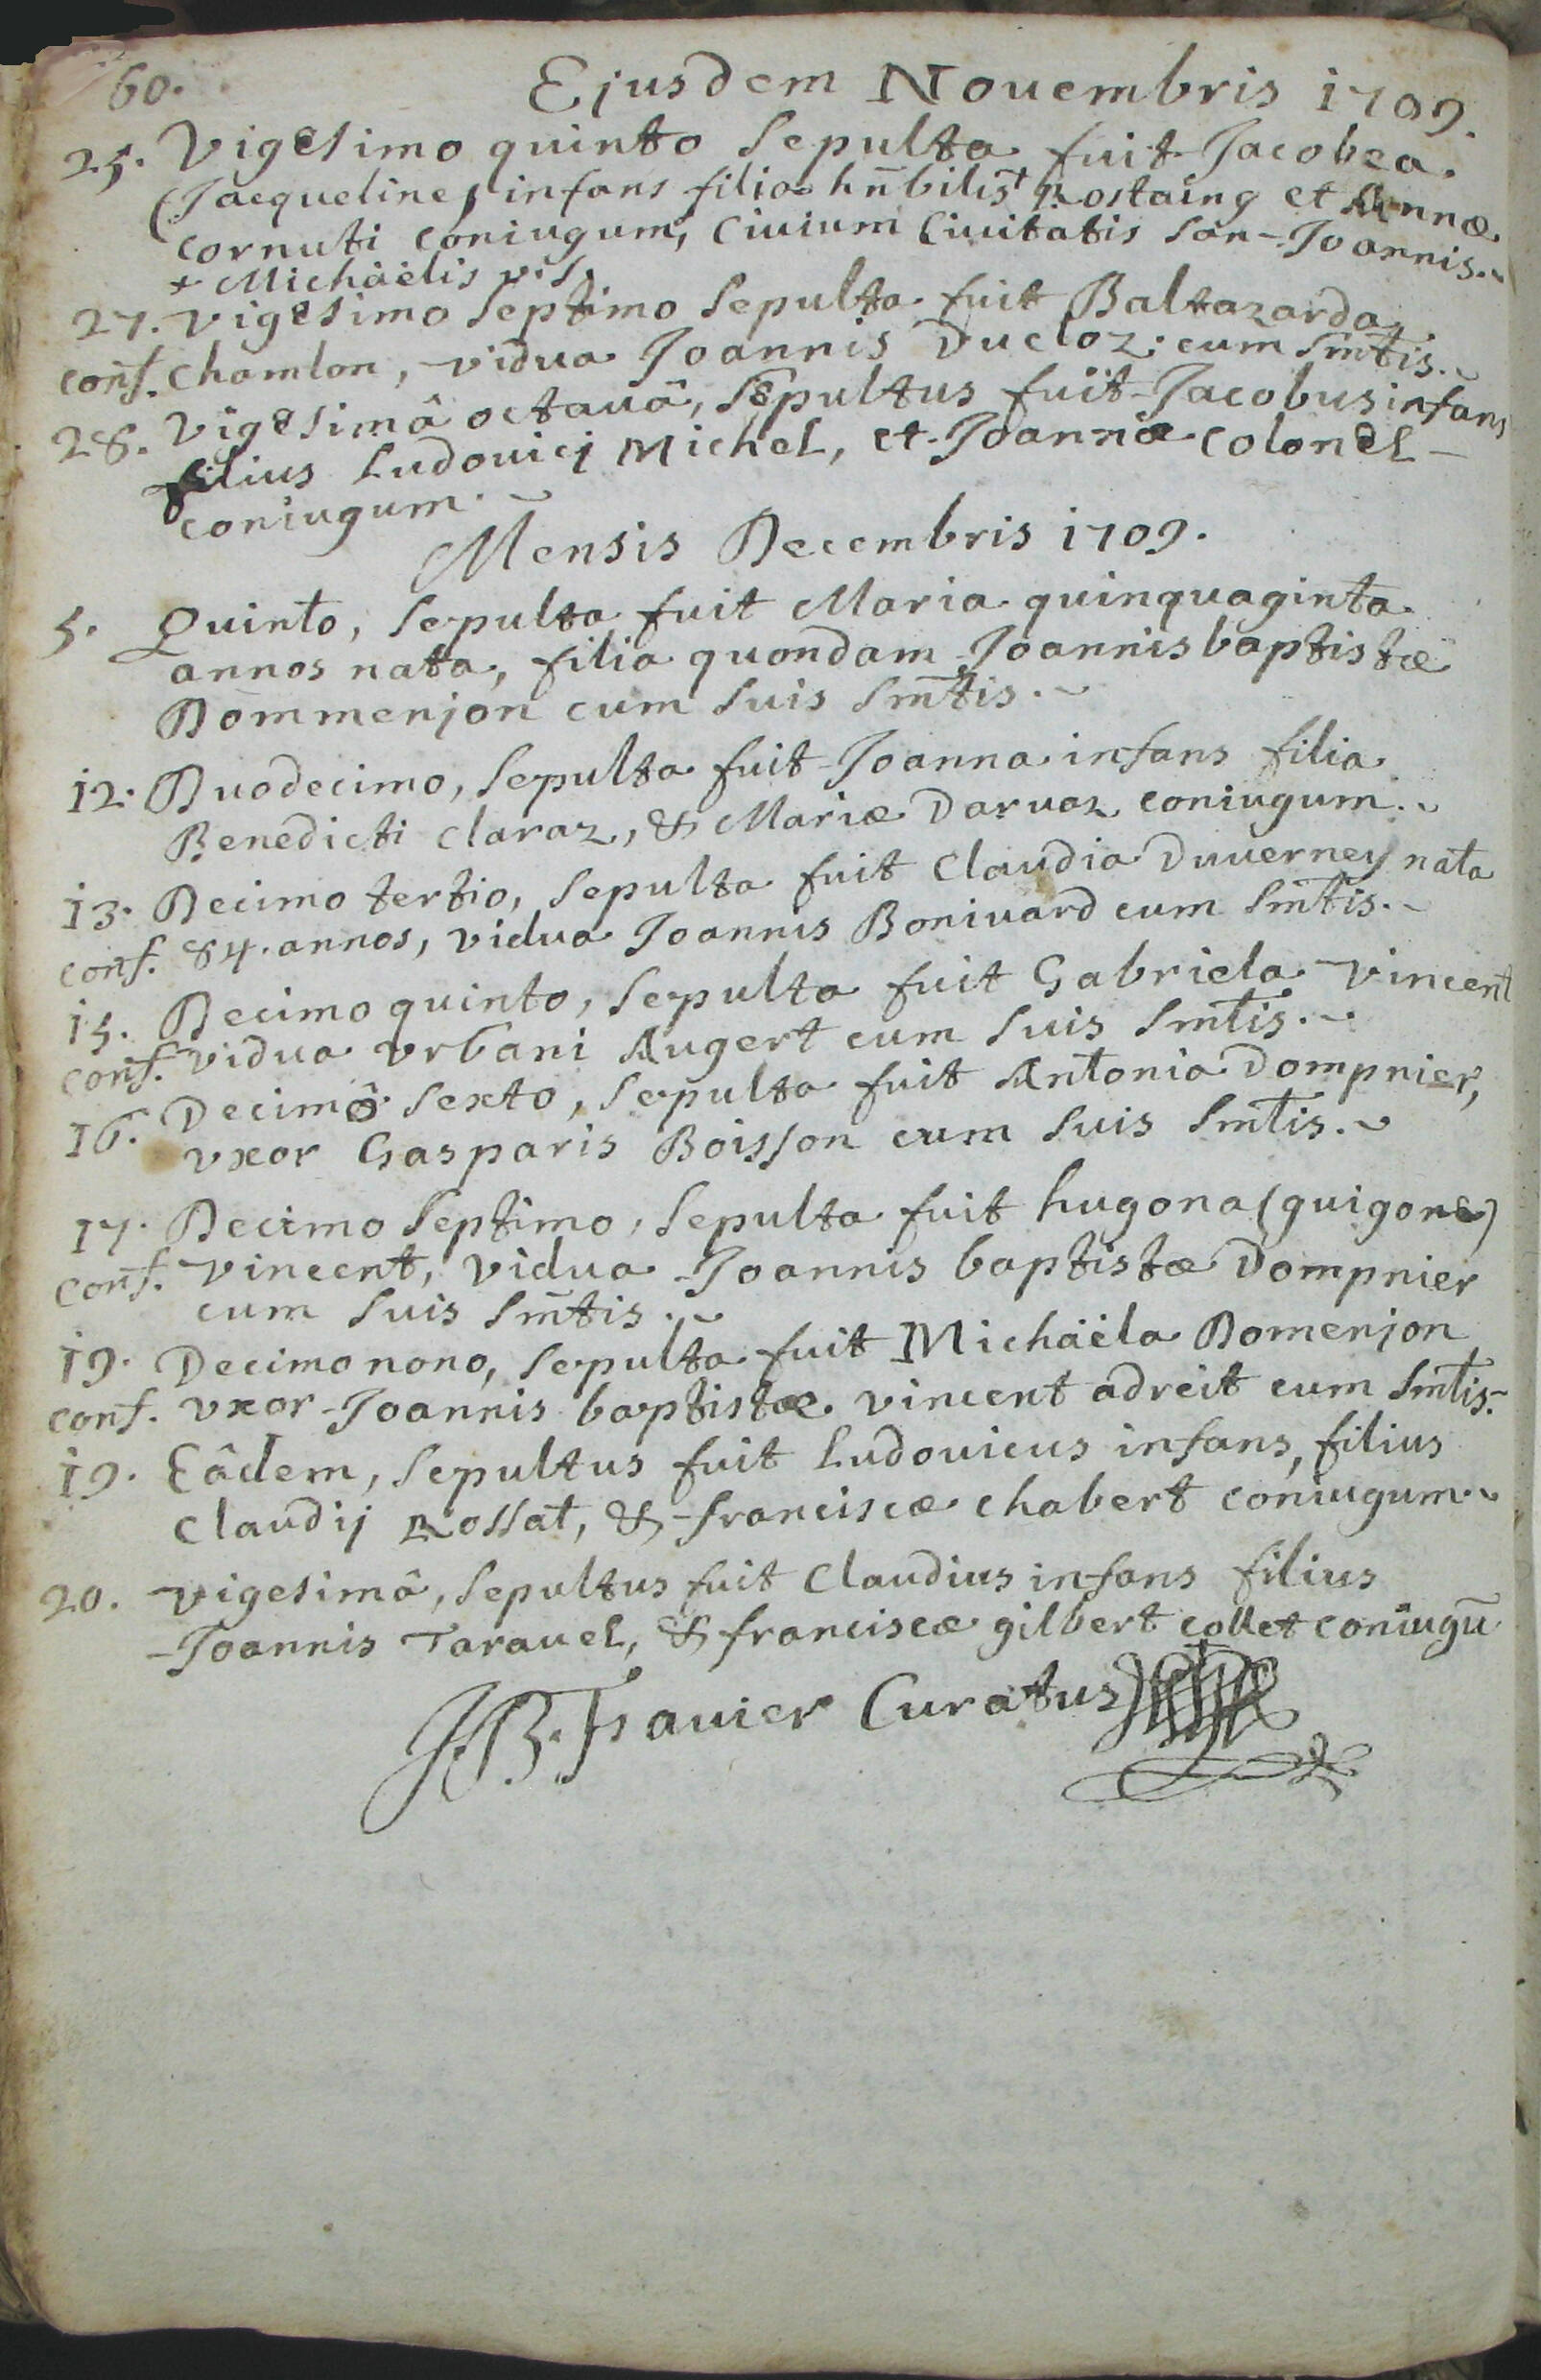 60.
Ejusdem Nouembris 1709.
25. Vigesimo quinto sepulta fuit Jacobea
(Jacqueline) infans filia hn̄bilis + Rostaing et Annæ
cornuti coniugum, Ciuium Ciuitatis San-Joannis.
+ Michäelis
27. vigesimo septimo sepulta fuit Baltazarda
conf. chamlon, vidua Joannis Ducloz cum Sm̄tis.
28. Vigesimâ octauâ, sepultus fuit Jacobus infans
filius Ludouicj Michel, et Joannæ colonel
coniugum.
Mensis Decembris 1709.
5. Quinto, sepulta fuit Maria quinquaginta
annos nata, filia quondam Joannis baptistæ
Dommenjon cum suis Sm̄tis.
12. Duodecimo, sepulta fuit Joanna infans filia
Benedicti claraz, & Mariæ Daruoz coniugum.
13. Decimo tertio, sepulta fuit Claudia Duuerney nata
conf. 84. annos, vidua Joannis Boniuard cum Sm̄tis.
15. Decimo quinto, sepulta fuit Gabriela vincent
conf. vidua vrbani Augert cum suis Sm̄tis.
16. Decimô sexto, sepulta fuit Antonia Dompnier,
vxor Gasparis Boisson cum suis Sm̄tis.
17. Decimo septimo, sepulta fuit hugona (guigone)
conf. vincent, vidua Joannis baptistæ Dompnier
cum suis Sm̄tis.
19. Decimo nono, sepulta fuit Michäela Domenjon
conf. vxor Joannis baptistæ vincent adreit cum Sm̄tis.
19. Eâdem, sepultus fuit Ludouicus infans, filius
Claudij Rossat, & franciscæ chabert coniugum.
20. vigesimâ, sepultus fuit Claudius infans filius
Joannis Tarauel, & franciscæ gilbert collet coniugū
J.B. Frauier Curatus